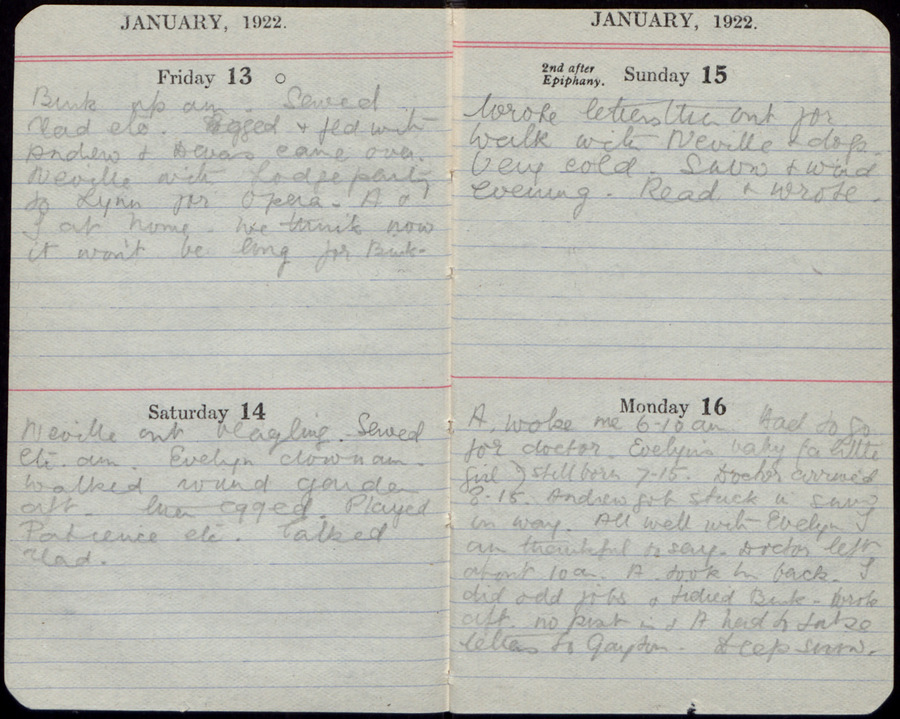 JANUARY, 1922.
Friday 13
Bink up am. Sewed
Read etc. Egged & fled with
Andrew & Devas came over.
Neville with Lodge party
to Lynn for Opera. A &
I at home. We think now
it won't be long for Bink.
Saturday 14
Neville out beagling. Sewed
etc. am. Evelyn down am.
Walked round garden
aft. then egged. Played
Patience etc. Talked
Read.
JANUARY, 1922.
2nd after
Epiphany. Sunday 15
Wrote letters then out for
walk with Neville & dogs.
Very cold. Snow & wind
evening. Read & wrote.
Monday 16
A. woke me 6-10 am. Had to go
for doctor. Evelyn's baby (a little
girl) stillborn 7-15. Doctor arrived
8-15. Andrew got stuck in snow
on way. All well with Evelyn I
am thankful to say. Doctor left
about 10 am. A. took him back. I
did odd jobs & tidied Bink. Wrote
aft. no post in & A had to take
letters to Gayton. Deep snow.